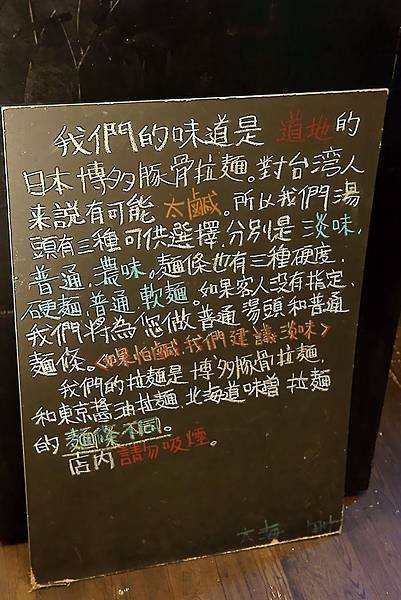 我們的味道是 道地的
日本博多豚骨拉麵。對台湾人
来説有可能 太鹹。所以我們湯
頭有三種可供選擇，分別是 淡味，
普通，濃味。麵條也有三種硬度，
硬麵，普通，軟麵。如果客人没有指定，
我們將為您做普通湯頭和普通
麵條。<如果怕鹹，我們建議淡味>
我們的拉麵是博多豚骨拉麵，
和東京醬油拉麵，北海道味噌 拉麵
的 麵條不同。
店内 請勿吸煙。